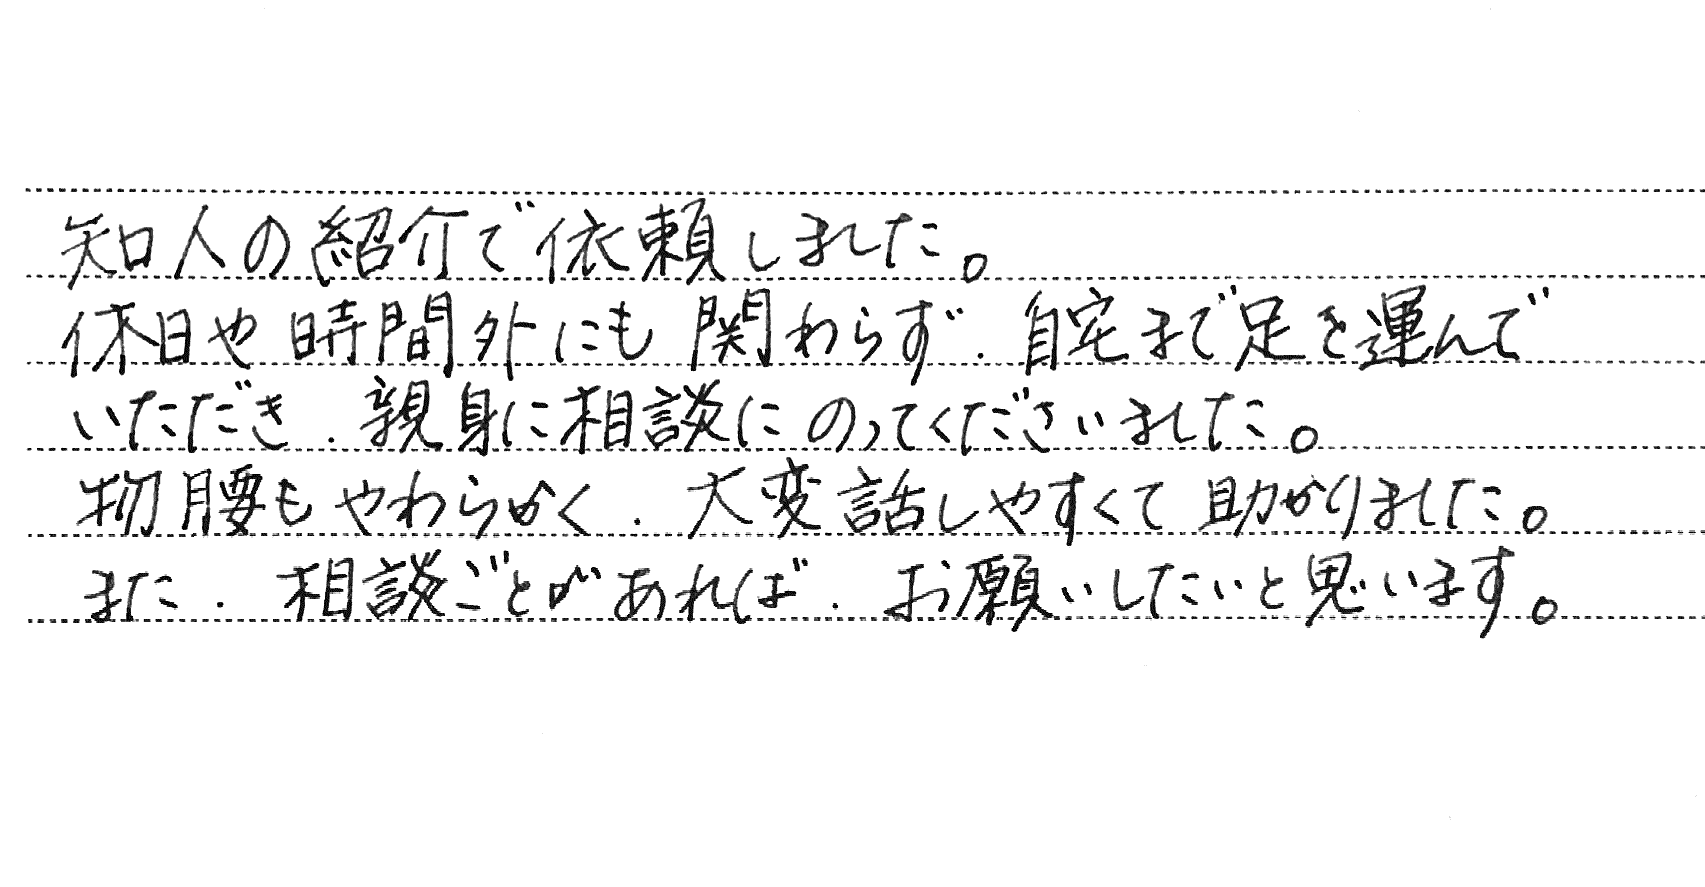 知人の紹介で依頼しました。
休日や時間外にも関わらず、自宅まで足を運んで
いただき、親身に相談にのってくださいました。
物腰もやわらかく、大変話しやすくて助かりました。
また、相談ごとがあれば、お願いしたいと思います。